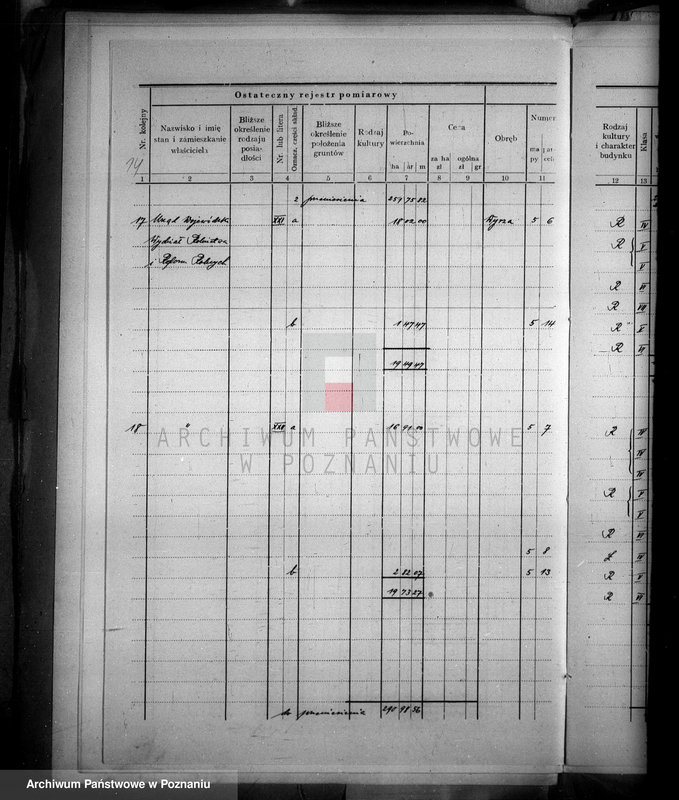 Ostateczny rejestr pomiarowy
Nr. kolejny
Nazwisko i imię
stan i zamieszkanie
właściciela
Bliższe
określenie
rodzaju
posia-
dłości
Nr. lub litera
Oznacz. części skład.
Bliższe
określenie
położenia
gruntów
Rodzaj
kultury
Po-
wierzchnia
ha ar m
Cena
za ha
zł
ogólna
zł gr
Obręb
Numer
ma
py
par
celi
Rodzaj
kultury
i charakter
budynku
Klasa
1 2 3 4 5 6 7 8 9 10 11 12 13
z przeniesienia 251 75 82
17 Urząd Wojewódzki XXI a 18 02 00 5 6 R IV
Wydział Rolnictwa R V
i Reform Rolnych V
R VI
R VII
b 1 47 47 5 14 R V
R VI
19 49 47
18 " XXII a 16 91 20 5 7 R IV
IV
IV
R V
V
R VI
5 8 Ł IV
b 2 82 07 5 13 R V
19 73 27 R VI
do przeniesienia 290 98 56
ARCHIWUM PAŃSTWOWE
W POZNANIU
Archiwum Państwowe w Poznaniu